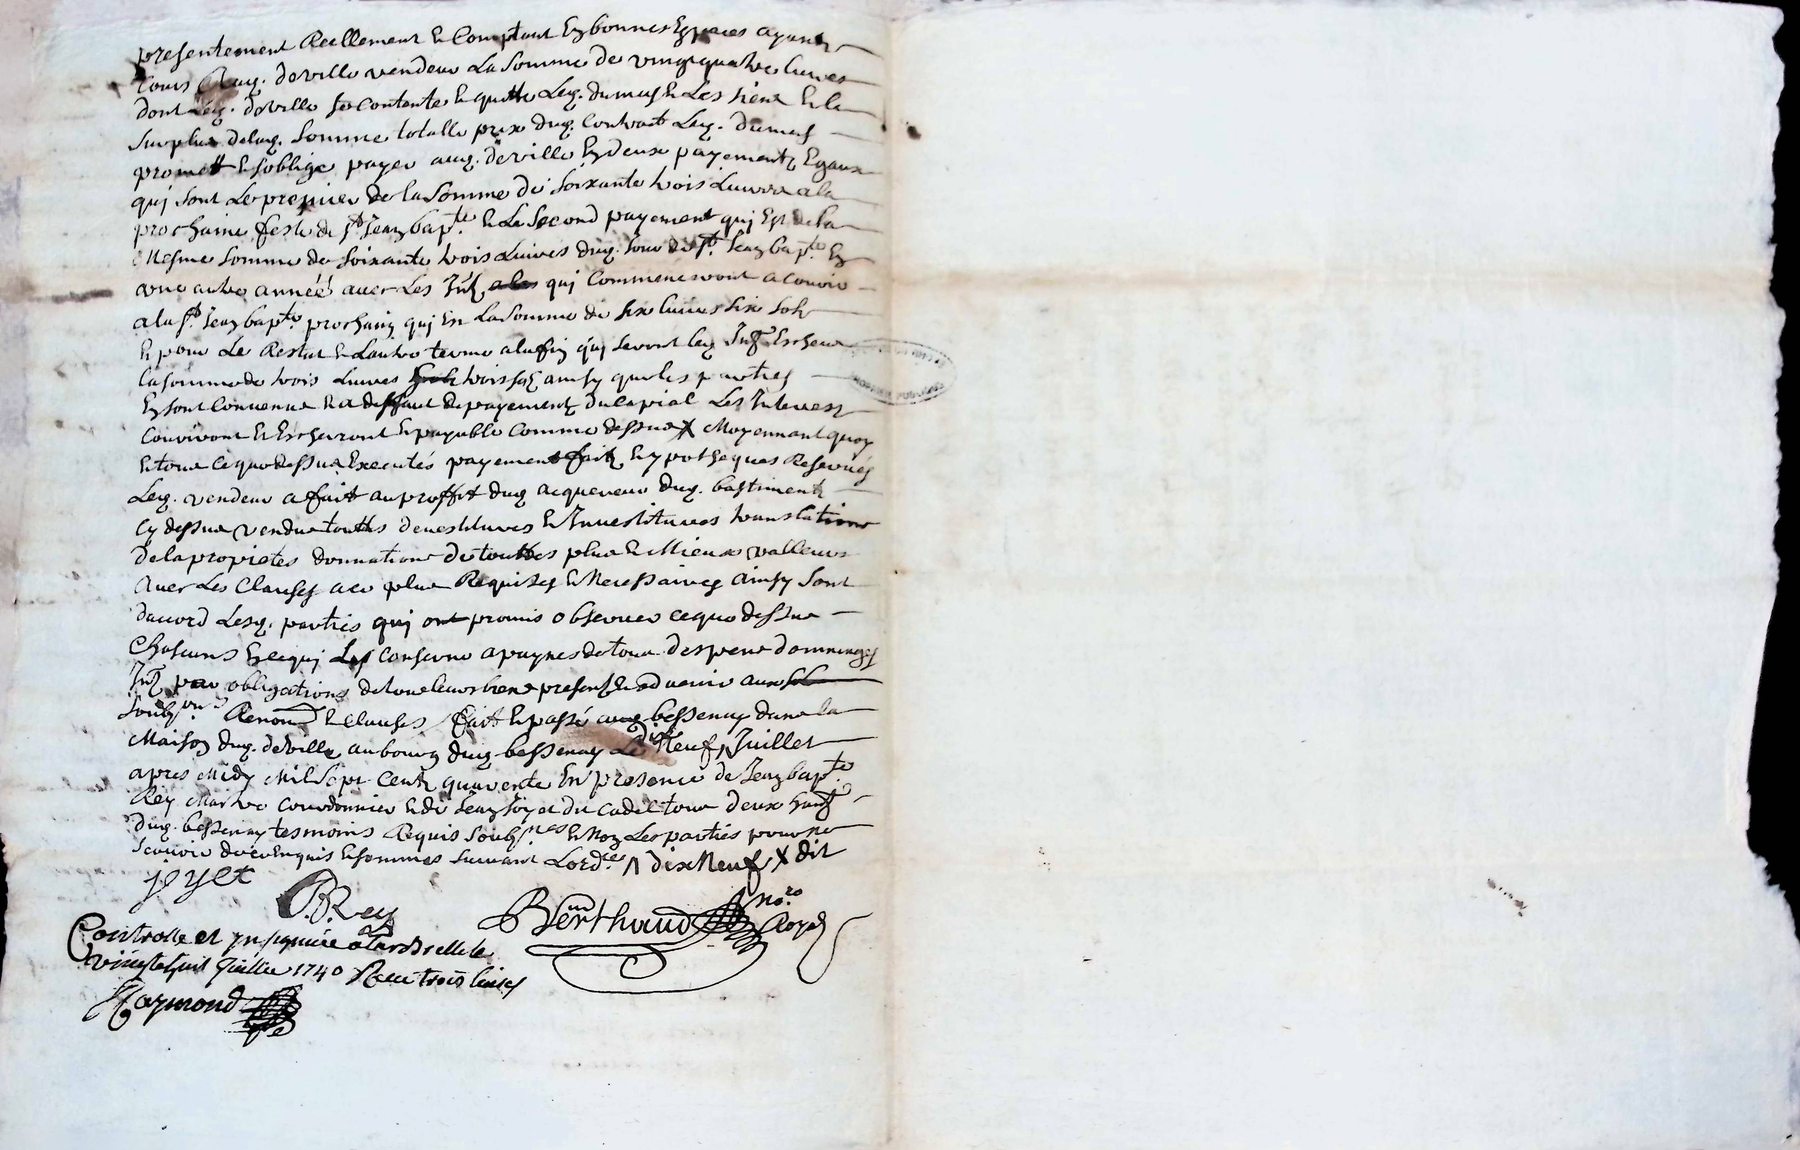 presentement Reellement & Comptant En bonnes Espèces ayant
Cours Aud. deville vendeur La Somme de vingt quatre Livres
dont Led. deville se Contente & quitte Led. dumas & Les siens & le
Surplus delad. Somme totalle prix dud. Contrat Led. dumas
promett & soblige payer aud. deville En deux payements Egaux
quj sont Le premier de la Somme de soixante trois Livres a la
prochaine feste de St. Jean bapte. & Le Second payement quj Est de la
Mesme Somme de soixante trois Livres dud. Jour de St. Jean bapte. En
une autre année avec Les Jnts quj Commenceront a Courir
a la St. Jean bapte. prochain quj Est La Somme de six Livres six sols
& pour Le Restat & Lautre terme a la fin quj seront Les Jnts Escheus
la somme de trois Livres trois sols ainsy que les parties
En sont Convenue & a deffaut de payements du Capial Les Jnterest
Couriront & Escherront & payable Comme dessus X Moyennant quoy
& tous ce que dessus Executés payements faits & ypotheques Reservés
Led. vendeur a fait au proffit dud acquereur dud. bastiments
Cy dessus vendus touttes devestitures & Jnvestitures translations
de la propietes donnations de touttes plus & Mieux valleurs
Avec Les Clauses a ce plus Requises & Necessaires ainsy sont
daccord Lesd. parties quj ont promis observer ce que dessus
Chascuns En ce quj Les Conserne a paynes de tous despens dommages
Jnts par obligations de tous leurs biens presents & advenir aux
Soubzons Renons & clauses fait & passé bessenay dans la
Maison dud. deville au bourg dud bessenay Le dix Neuf Juillet
apres Midy Mil Sept Cents quarente En presence de Jean bapte.
Rey Maitre Courdonnier & de Jean Joyet du Cadel tous deux hants
dud. bessenay tesmoins Requis Soubznes & Non Les parties pour ne
scavoir de ce Enquis & sommes suivant Lordce /\ dix Neuf X dit
j joyet
B. Rey
Berthaud no.re Royal
Controlle et jnsinuée a Larbrelle le
vingt huit Juillet 1740 Receu trois livres
Raymond